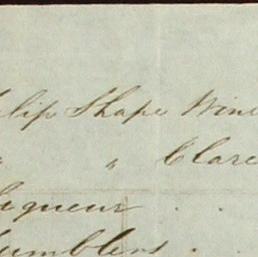 ulip Shape Wine
" " Clare
Liqueur . .
umblers . .